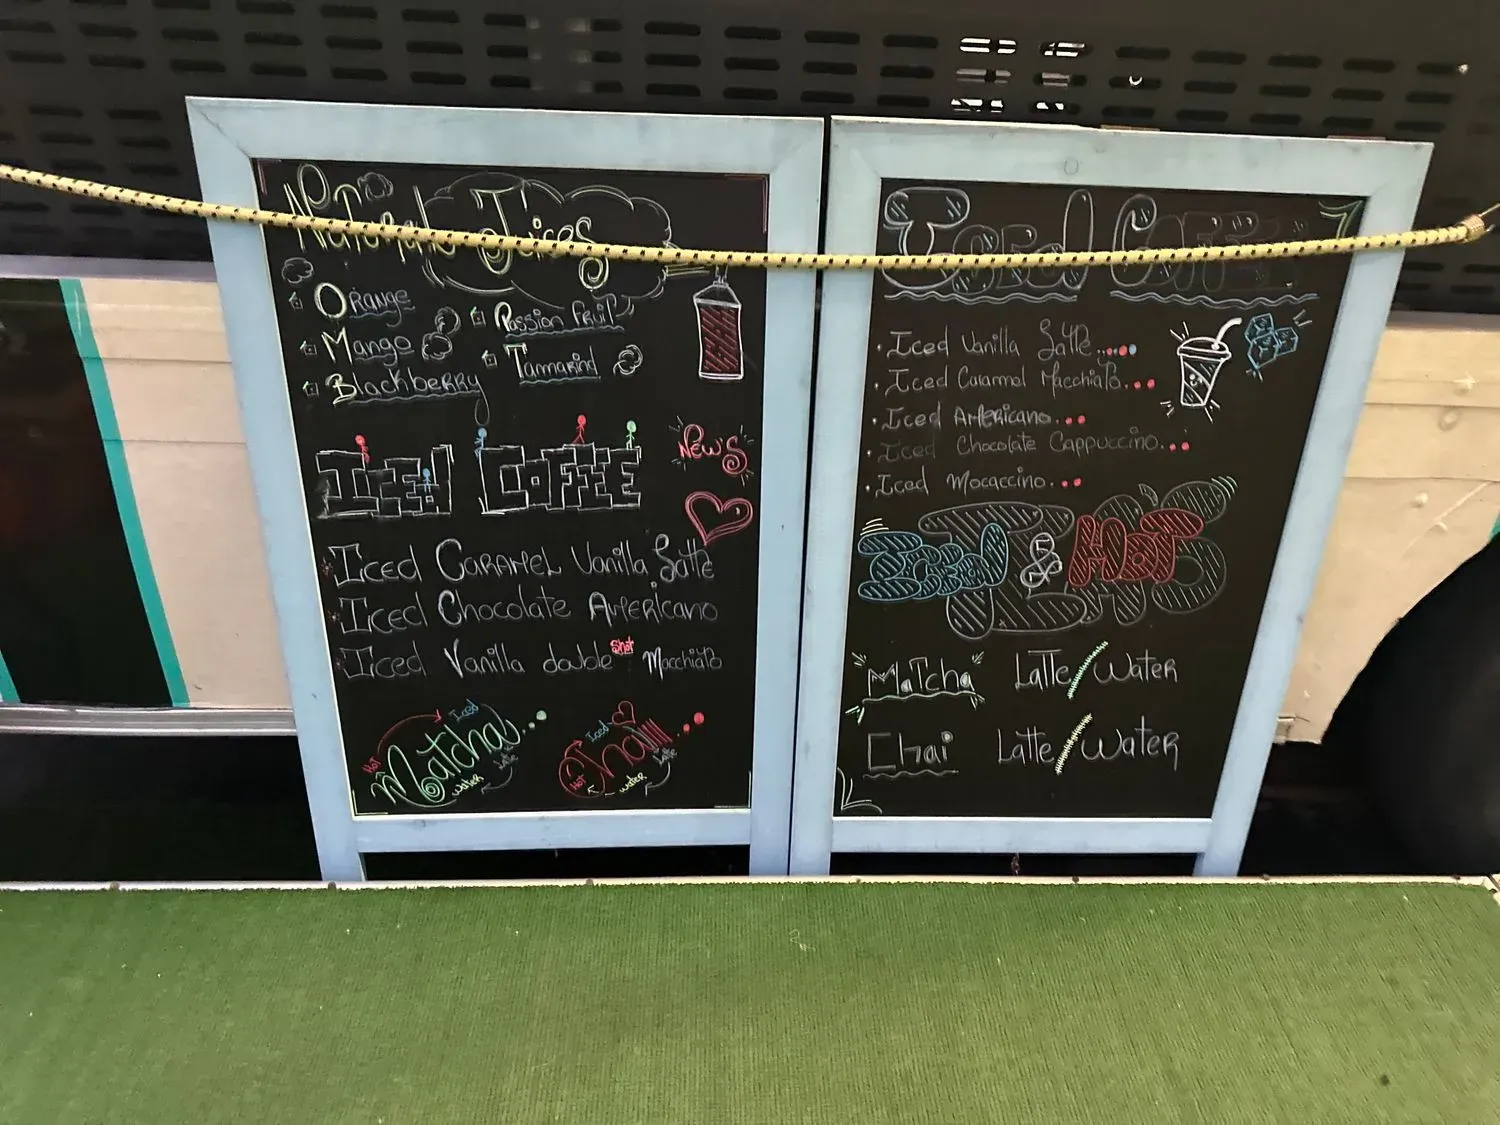 Natural Juices
Orange
Mango
Blackberry
Passion Fruit
Tamarind
Iced Coffee
New's
Iced Caramel Vanilla Latte
Iced Chocolate Americano
Iced Vanilla double Shot Macchiato
Iced
Matcha
Hot
Latte
Water
Iced
Chai
Hot
Latte
Water
Iced Coffee
Iced Vanilla Latte
Iced Caramel Macchiato
Iced Americano
Iced Chocolate Cappuccino
Iced Mocaccino
Iced & Hot
Matcha Latte/Water
Chai Latte/Water